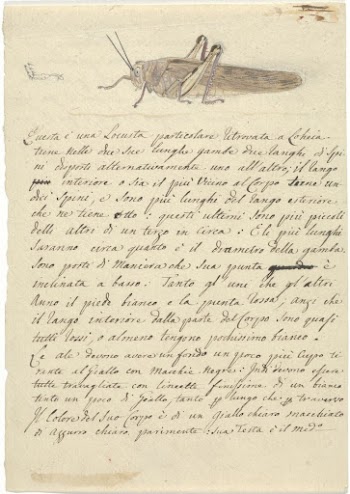 Questa è una Locusta particolare ritrovata a
tiene nelle due sue lunghe gambe due ranghi di Spi
ni disposti alternativamente uno all'altro; il rango
interiore o sia il più vicino al Corpo tiene un
dici Spini, e sono più lunghi del rango esteriore
che ne tiene otto: questi ultimi sono più piccoli
delli altri di un terzo in circa: E le più lunghi
saranno circa quanto è il diametro della gamba.
Sono posti di Maniera che sua punta è
inclinata a basso: Tanto gl'uni che gl'altri
anno il piede bianco e la punta rossa, anzi che
il rango interiore dalla parte del Corpo sono quasi
tutti rossi, o almeno tengono pochissimo bianco.
Le ale devono avere un fondo un poco più
rente al Giallo con Macchie Negre: devono essere
tutte travagliate con lineette finissime di un bianco
tinto un poco di Giallo, tanto p lungo che p traverso
Il Colore del suo Corpo è di un Giallo chiaro macchiato
di Azzurro chiaro, parimente: sua Testa è il med.mo